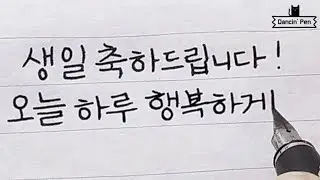 Dancin' Pen
생일 축하드립니다!
오늘 하루 행복하게